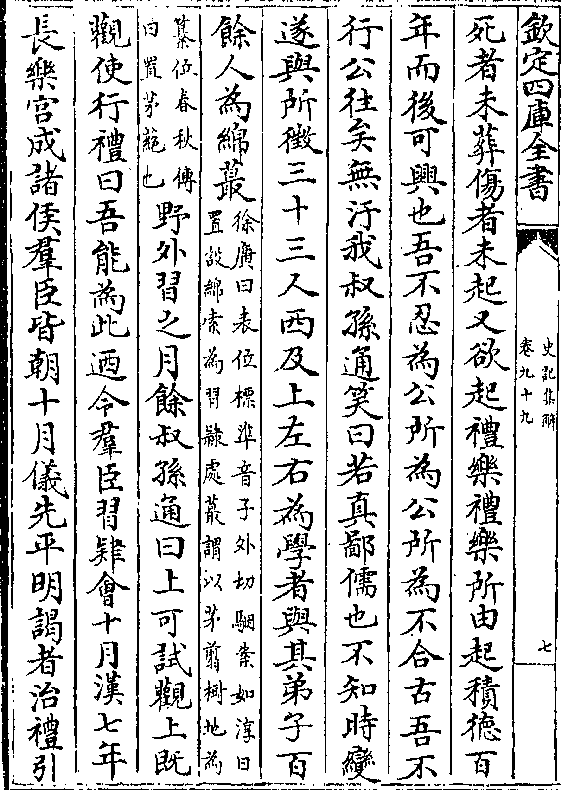 欽定四庫全書
史記集解
卷九十九
七
死者未葬傷者未起又欲起禮樂禮樂所由起積徳百
年而後可興也吾不忍為公所為公所為不合古吾不
行公往矣無汙我叔孫通笑曰若真鄙儒也不知時變
遂與所徵三十三人西及上左右為學者與其弟子百
餘人為綿蕞徐廣曰表位標準音子外切駰案如淳曰
置設綿索為習肄處蕞謂以茅翦樹地為
纂位春秋傳
曰置茅蕝也野外習之月餘叔孫通曰上可試觀上既
觀使行禮曰吾能為此迺令羣臣習肄會十月漢七年
長樂宮成諸侯羣臣皆朝十月儀先平明謁者治禮引